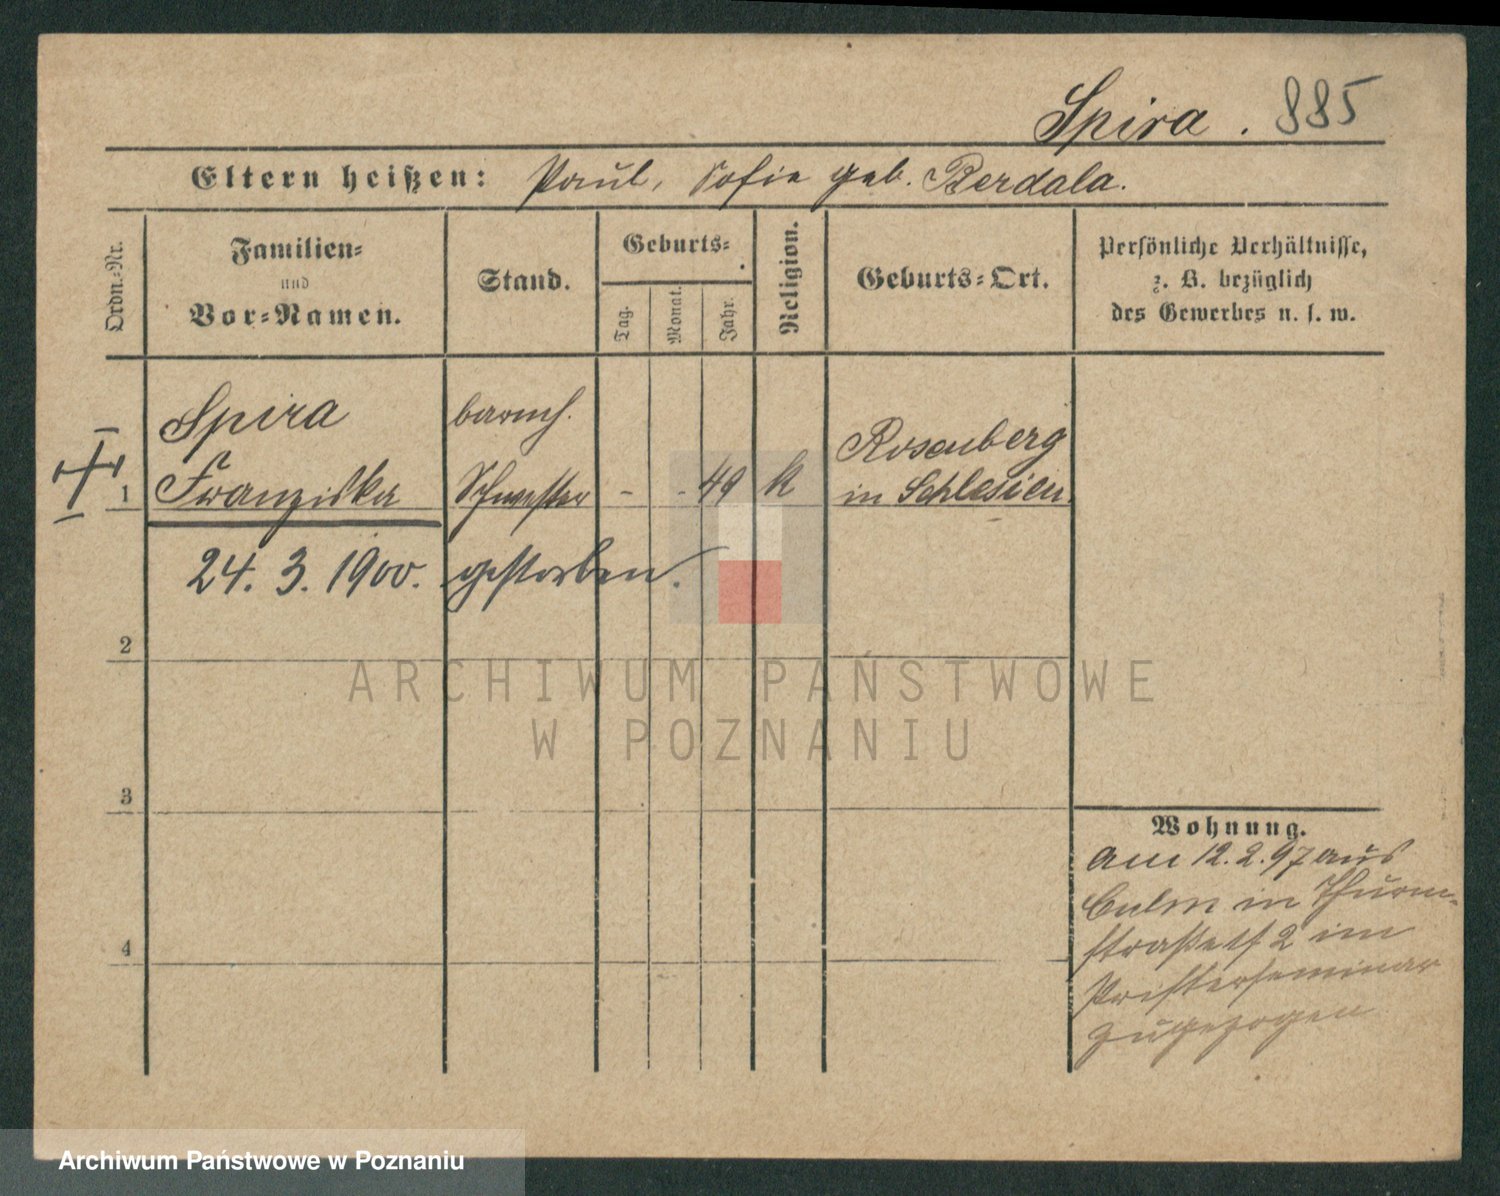 Spira. 885
Eltern heißen: Paul, Sofie geb. Berdala.
Ordn.=Nr.
Familien=
und
Vor=Namen.
Stand.
Geburts=
Tag.
Monat.
Jahr.
Religion.
Geburts=Ort.
Persönliche Verhältnisse,
z. B. bezüglich
des Gewerbes u. s. w.
1
Spira
Franziska
barmh.
Schwester
- - 49
k
Rosenberg
in Schlesien.
24. 3. 1900. gestorben.
2
ARCHIWUM PAŃSTWOWE
W POZNANIU
3
4
Wohnung.
Am 12.2.97 aus
Culm in Thurm-
straße 2 im
Pristerseminar
zugezogen
Archiwum Państwowe w Poznaniu